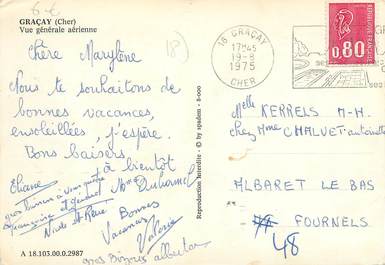 6 €
GRAÇAY (Cher)
Vue générale aérienne
18
Chère Marylène
Nous te souhaitons de
bonnes vacances,
ensoleillées j'espère.
Bons baisers
à bientôt
Eliane
Mme Duhormel
gros
à vous quatre
Françoise et
Nicole et René
Bonnes
Vacances
Valérie
gros Bisous
A 18.103.00.0.2987
Reproduction interdite - © by spadem - 8-000
18 GRAÇAY
17H45
19-8
1975
CHER
FRANÇAISE
0,80
Melle KERRELS M-H.
chez Mme CHALVET antoinette
ALBARET LE BAS
FOURNELS
48